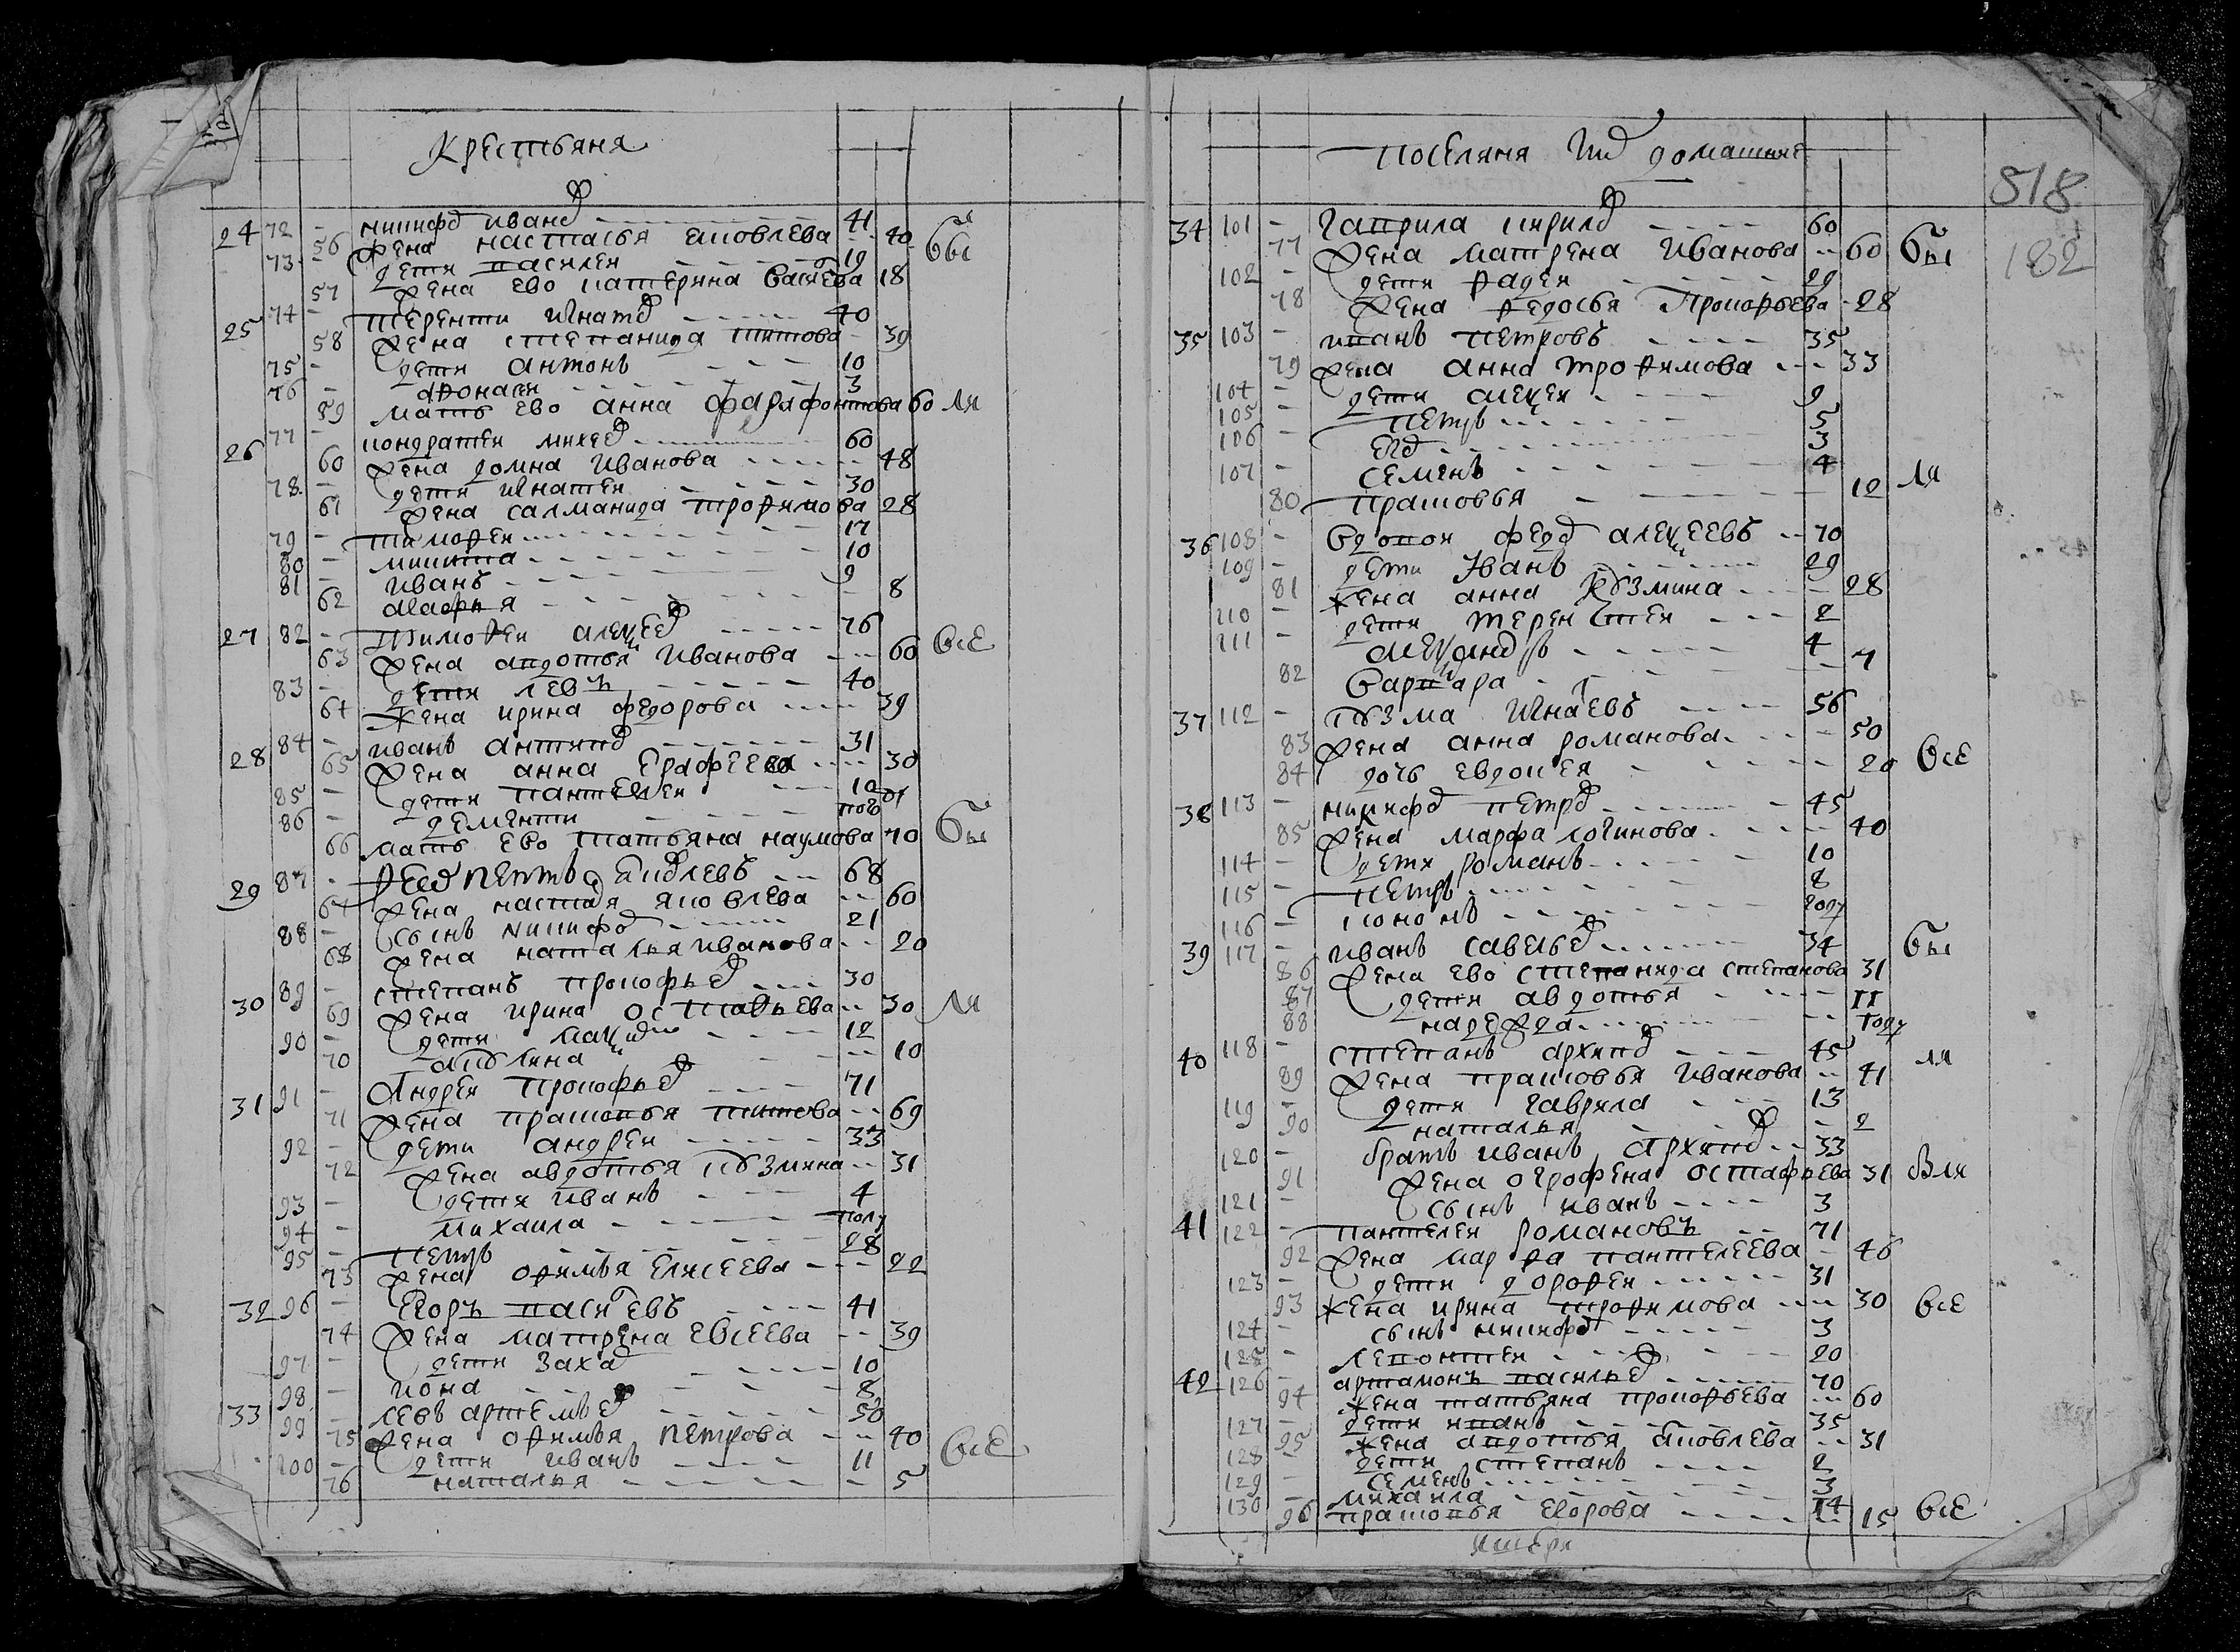 Крестьяня
24 72 - никифо иванд 41
56 жена настасья яковлева 40 бы
73 - дети василеи 19
57 жена ево катерина васиева 18
25 74 - терентии игнатд 40
58 жена степанида титова 39
75 - дети антонъ 10
76 - афонасеи 3
59 мать ево анна фарафонтова 60 ли
26 77 - кондратеи михед 60
60 жена домна иванова 48
78 - дети игнатеи 30
61 жена саломанида трофимова 28
79 - тимофеи 17
80 - никита 10
81 - иванъ 9
62 агафья 8
27 82 - тимофеи алексед 76
63 жена авдотья иванова 60 все
83 - дети левъ 40
64 жена ирина федорова 39
28 84 - иванъ антипд 31
65 жена анна ерафеева 30
85 - дети пантелеи 10
86 - дементи
66 мать ево татьяна наумова 70 бы
29 87 - 68
67 жена настася яковлева 60
88 - сынъ никифо 21
68 жена наталья иванова 20
30 89 - степанъ прокофьед 30
69 жена ирина остафьева 30 ли
90 - дети максим 12
70 акулина 10
31 91 - андреи прокофьед 71
71 жена прасковья титова 69
92 - дети андреи 33
72 жена авдотья кузмина 31
93 - дети иванъ 4
94 - михаила полу
95 - петръ 28
73 жена офимья елисеева 22
32 96 - егоръ васиевъ 41
74 жена матрена евсеева 39
97 - дети заха 10
98 - иона 8
33 99 - левъ артемьед 50
75 жена офимья петрова 40
100 - дети иванъ 11 все
76 наталья 5
поселяня домашние
518
182
34 101 - гаврила кирилд 60
77 жена матрена иванова 60 бы
102 - дети фадеи 29
78 жена федосья прокофьева 28
35 103 - иванъ петровъ 35
79 жена анна трофимова 33
104 - дети алексеи 9
105 - петръ 5
106 - его 3
107 - семенъ 4
80 прасковья 12 ли
36 108 - вдовои федо алексеевъ 70
109 - дети иванъ 29
81 жена анна кузмина 28
110 - дети терентеи 2
111 - александръ 4
82 варвара 7
37 112 - кузма игнаевъ 56
83 жена анна романова 50
84 дочь евдокея 20 все
38 113 - никифо петрд 45
85 жена марфа логинова 40
114 - дети романъ 10
115 - петръ 8
116 - кононъ году
39 117 - иванъ савельед 34 бы
86 жена ево степанида степанова 31
87 дети авдотья 11
88 надежда году
40 118 - степанъ архипд 45
89 жена прасковья иванова 41 ли
119 - дети гаврила 13
90 наталья 2
120 - братъ иванъ архипд 33
91 жена огрофена остафьева 31 вли
121 - сынъ иванъ 3
41 122 - пантелеи романовъ 71
92 жена марфа пантелеева 46
123 - дети дорофеи 31
93 жена ирина трофимова 30 все
124 - сынъ никифо 3
125 - левонтеи 20
42 126 - артамонъ василед 70
94 жена татьяна прокофьева 60
127 - дети иванъ 35
95 жена авдотья яковлева 31
128 - дети степанъ 2
129 - семенъ 3
130 - михаила 14
96 прасковья егорова 15 все